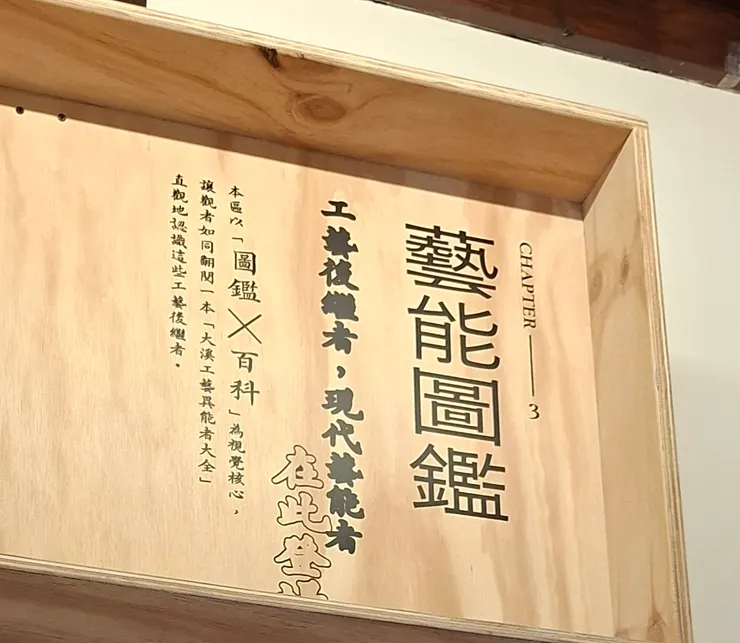 CHAPTER — 3
藝能圖鑑
工藝後繼者，現代藝能者
在此登
本區以「圖鑑╳百科」為視覺核心，
讓觀者如同翻閱一本「大溪工藝異能者大全」
直觀地認識這些工藝後繼者。